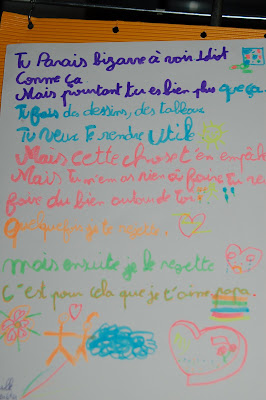 Tu Parais bizarre à voir Idiot
Comme ça
Mais pourtant tu es bien plus que ça.
Tu fais des dessins, des tableaux
Tu veux te rendre utile
Mais cette chose t'en empêche
Mais tu n'en as rien à faire tu veux
faire du bien autour de toi
Quelquefois je te rejette.
mais ensuite je le regrette
C'est pour cela que je t'aime papa.